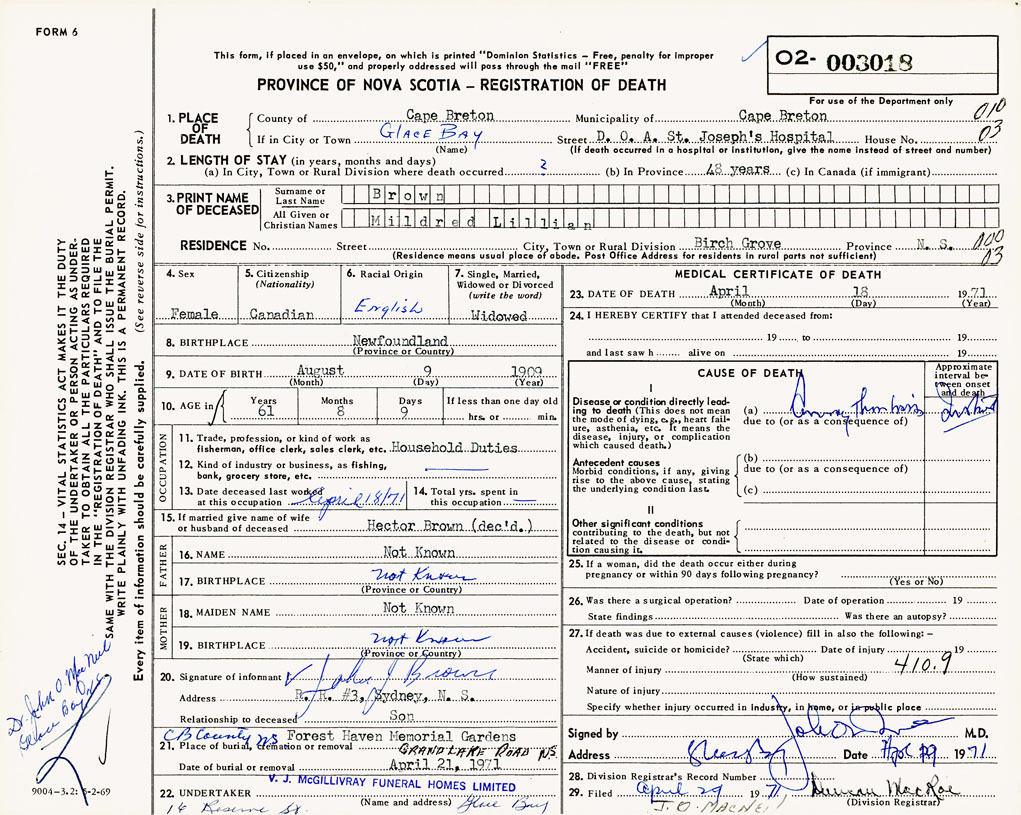 FORM 6
This form, if placed in an envelope, on which is printed "Dominion Statistics – Free, penalty for improper
use $50," and properly addressed will pass through the mail "FREE"
PROVINCE OF NOVA SCOTIA – REGISTRATION OF DEATH
02- 003018
For use of the Department only
1. PLACE OF DEATH
County of Cape Breton Municipality of Cape Breton 010
If in City or Town GLACE BAY Street D. O. A. St. Joseph's Hospital House No. 03
(Name) (If death occurred in a hospital or institution, give the name instead of street and number)
2. LENGTH OF STAY (in years, months and days)
(a) In City, Town or Rural Division where death occurred (b) In Province 48 years (c) In Canada (if immigrant)
3. PRINT NAME OF DECEASED
Surname or Last Name Brown
All Given or Christian Names Mildred Lillian
RESIDENCE No. Street City, Town or Rural Division Birch Grove Province N. S. 000
(Residence means usual place of abode. Post Office Address for residents in rural parts not sufficient) 03
4. Sex
Female
5. Citizenship
(Nationality)
Canadian
6. Racial Origin
English
7. Single, Married,
Widowed or Divorced
(write the word)
Widowed
8. BIRTHPLACE Newfoundland
(Province or Country)
9. DATE OF BIRTH August 9 1909
(Month) (Day) (Year)
10. AGE in
Years Months Days If less than one day old
61 8 9 hrs. or min.
OCCUPATION
11. Trade, profession, or kind of work as
fisherman, office clerk, sales clerk, etc. Household Duties
12. Kind of industry or business, as fishing,
bank, grocery store, etc.
13. Date deceased last worked
at this occupation April 18/71
14. Total yrs. spent in
this occupation —
15. If married give name of wife
or husband of deceased Hector Brown (dec'd.)
FATHER
16. NAME Not Known
17. BIRTHPLACE not Known
(Province or Country)
MOTHER
18. MAIDEN NAME Not Known
19. BIRTHPLACE not Known
(Province or Country)
20. Signature of informant John J Brown
Address R. R. #3, Sydney, N. S.
Relationship to deceased Son
CB County NS Forest Haven Memorial Gardens
21. Place of burial, cremation or removal GRAND LAKE ROAD N.S.
Date of burial or removal April 21, 1971
V. J. McGILLIVRAY FUNERAL HOMES LIMITED
22. UNDERTAKER (Name and address) Glace Bay
16 Reserve St.
MEDICAL CERTIFICATE OF DEATH
23. DATE OF DEATH April 18 1971
(Month) (Day) (Year)
24. I HEREBY CERTIFY that I attended deceased from:
19 , to 19
and last saw h alive on 19
CAUSE OF DEATH
Approximate
interval be-
tween onset
and death
I
Disease or condition directly lead-
ing to death (This does not mean
the mode of dying, e.g., heart fail-
ure, asthenia, etc. It means the
disease, injury, or complication
which caused death.)
(a) Coronary Thrombosis
due to (or as a consequence of)
Antecedent causes
Morbid conditions, if any, giving
rise to the above cause, stating
the underlying condition last.
(b)
due to (or as a consequence of)
(c)
II
Other significant conditions
contributing to the death, but not
related to the disease or condi-
tion causing it.
25. If a woman, did the death occur either during
pregnancy or within 90 days following pregnancy?
(Yes or No)
26. Was there a surgical operation? Date of operation 19
State findings Was there an autopsy?
27. If death was due to external causes (violence) fill in also the following: –
Accident, suicide or homicide? Date of injury 19
(State which)
Manner of injury 410.9
(How sustained)
Nature of injury
Specify whether injury occurred in industry, in home, or in public place
Signed by M.D.
Address Glace Bay Date Apl 29 1971
28. Division Registrar's Record Number
29. Filed April 29 1971 Duncan MacRae
J. O. MACNEIL (Division Registrar)
SEC. 14 – VITAL STATISTICS ACT MAKES IT THE DUTY
OF THE UNDERTAKER OR PERSON ACTING AS UNDER-
TAKER TO OBTAIN ALL THE PARTICULARS REQUIRED
IN THE "REGISTRATION OF DEATH" AND TO FILE THE
SAME WITH THE DIVISION REGISTRAR WHO SHALL ISSUE THE BURIAL PERMIT.
WRITE PLAINLY WITH UNFADING INK. THIS IS A PERMANENT RECORD.
Every item of information should be carefully supplied. (See reverse side for instructions.)
Dr. John O. MacNeil
Glace Bay N.S.
9004-3.2: 6-2-69